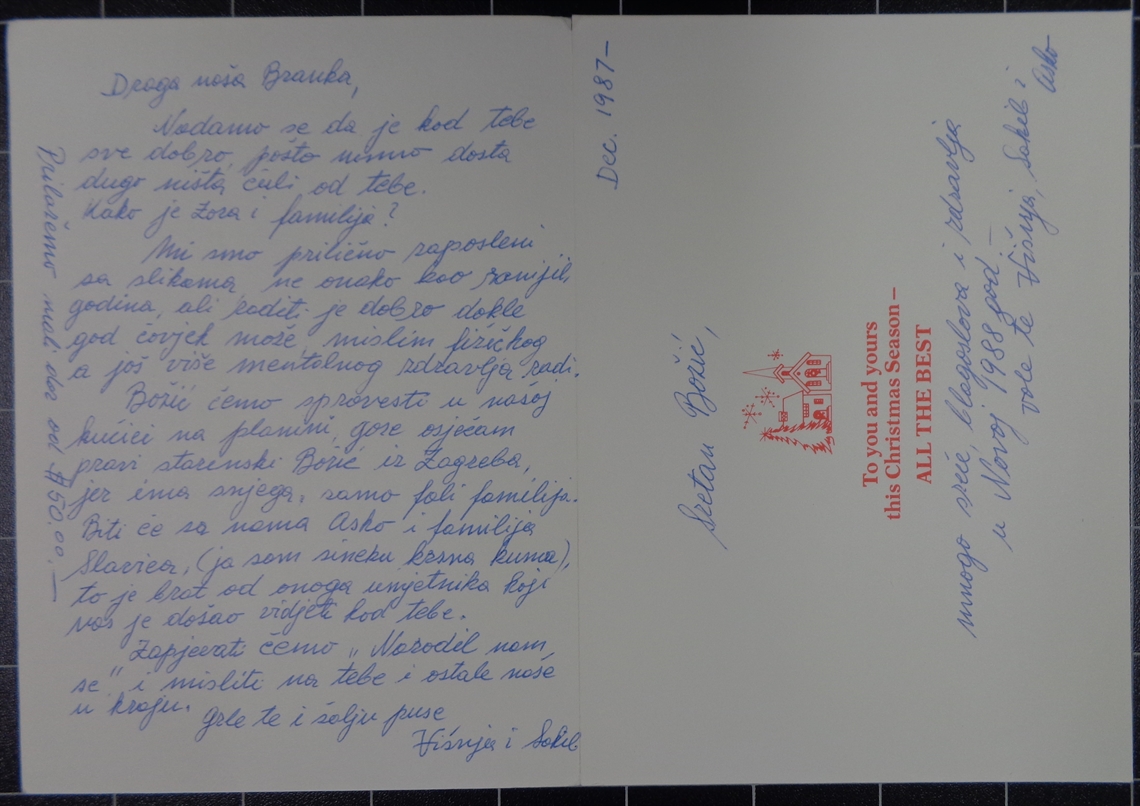 Draga naša Branka,
Nadamo se da je kod tebe
sve dobro, pošto nismo dosta
dugo ništa čuli od tebe.
Kako je Zora i familija?
Mi smo prilično zaposleni
sa slikama, ne onako kao ranijih
godina, ali raditi je dobro dokle
god čovjek može, mislim fizičkog
a još više mentalnog zdravlja radi.
Božić ćemo sprovesti u našoj
kućici na planini, gore osjećam
pravi starenski Božić iz Zagreba,
jer ima snjega, samo fali familija.
Biti će sa nama Asko i familija
Slavica, (ja sam sineku krsna kuma),
to je brat od onoga umjetnika koji
vas je došao vidjeti kod tebe.
Zapjevati ćemo „Narodil nam
se" i misliti na tebe i ostale naše
u kraju.
Grle te i šalju puse
Višnja i Sakib
Prilažemo mali dar od $50.00.—
Dec. 1987—
Sretan Božić,
To you and yours
this Christmas Season—
ALL THE BEST
mnogo sreće, blagoslova i zdravlja
u Novoj 1988 god—
vole te Višnja, Sakib i
Asko